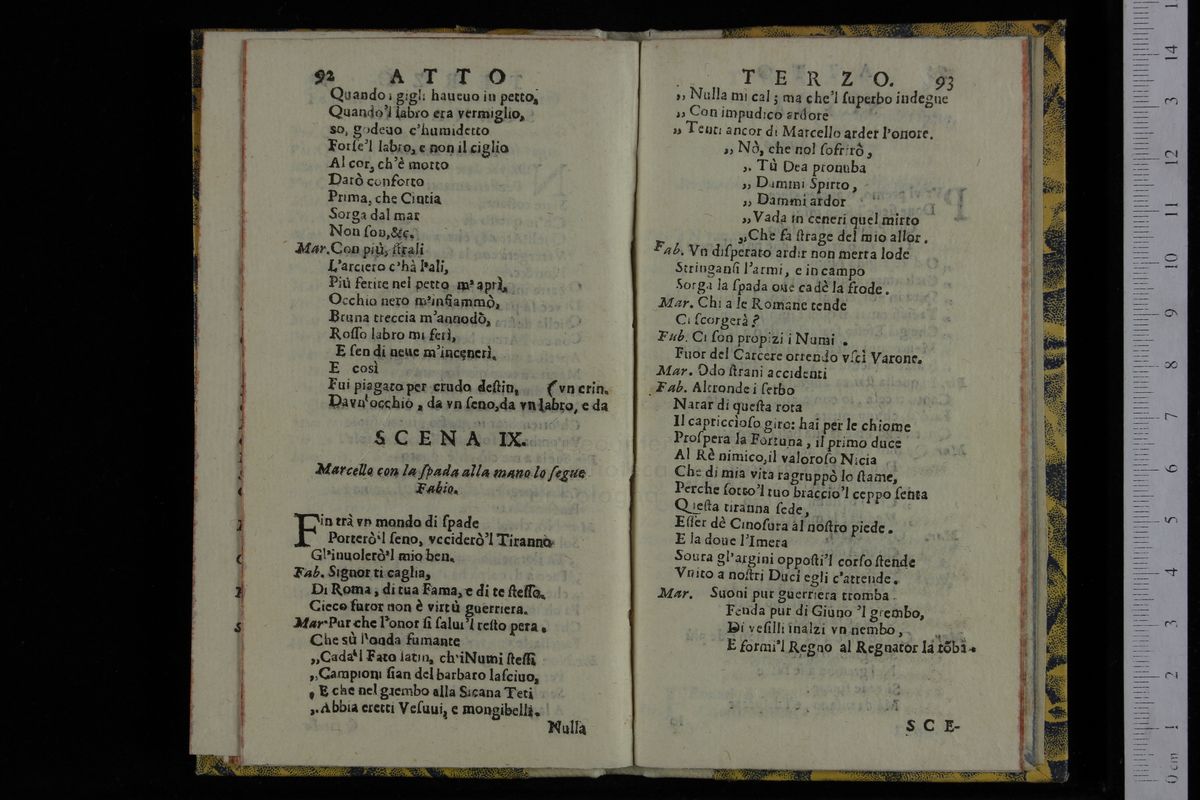 92 ATTO
Quando i gigli haueuo in petto,
Quando'l labro era vermiglio,
so, godeuo c'humidetto
Forse'l labro, e non il ciglio
Al cor, ch'è morto
Darò conforto
Prima, che Cintia
Sorga dal mar
Non son,&c.
Mar. Con più, strali
L'arciero c'hà l'ali,
Più ferite nel petto m'aprì,
Occhio nero m'infiammò,
Bruna treccia m'annodò,
Rosso labro mi ferì,
E sen di neue m'incenerì.
E così
Fui piagato per crudo destin, (vn crin.
Davn'occhio, da vn seno,da vn labro, e da
SCENA IX.
Marcello con la spada alla mano lo segue
Fabio.
Fin trà vn mondo di spade
Porterò'l seno, vcciderò'l Tiranno
Gl'inuolerò'l mio ben.
Fab. Signor ti caglia,
Di Roma, di tua Fama, e di te stesso.
Cieco furor non è virtù guerriera.
Mar Pur che l'onor si salui'l resto pera.
Che sù l'onda fumante
,,Cada'l Fato latin, ch'iNumi stessi
,,Campioni sian del barbaro lasciuo,
, E che nel grembo alla Sicana Teti
,,Abbia eretti Vesuui, e mongibelli.
Nulla
TERZO. 93
,, Nulla mi cal; ma che'l superbo indegne
,, Con impudico ardore
,, Tenti ancor di Marcello arder l'onore.
,, Nò, che nol sofrirò,
,. Tù Dea pronuba
,, Dammi Spirto,
,, Dammi ardor
,, Vada in ceneri quel mirto
,,Che fa strage del mio allor.
Fab. Vn disperato ardir non merta lode
Stringansi l'armi, e in campo
Sorga la spada oue cadè la frode.
Mar. Chi a le Romane tende
Ci scorgerà?
Fab. Ci son propizi i Numi.
Fuor del Carcere orrendo vscì Varone.
Mar. Odo strani accidenti
Fab. Altronde i serbo
Narar di questa rota
Il capriccioso giro: hai per le chiome
Prospera la Fortuna, il primo duce
Al Rè nimico,il valoroso Nicia
Che di mia vita ragruppò lo stame,
Perche sotto'l tuo braccio'l ceppo senta
Questa tiranna sede,
Esser dè Cinosura al nostro piede.
E la doue l'Imera
Soura gl'argini opposti'l corso stende
Vnito a nostri Duci egli c'attende.
Mar. Suoni pur guerriera tromba
Fenda pur di Giuno 'l grembo,
Di vesilli inalzi vn nembo,
E formi'l Regno al Regnator la tõba.
SCE-